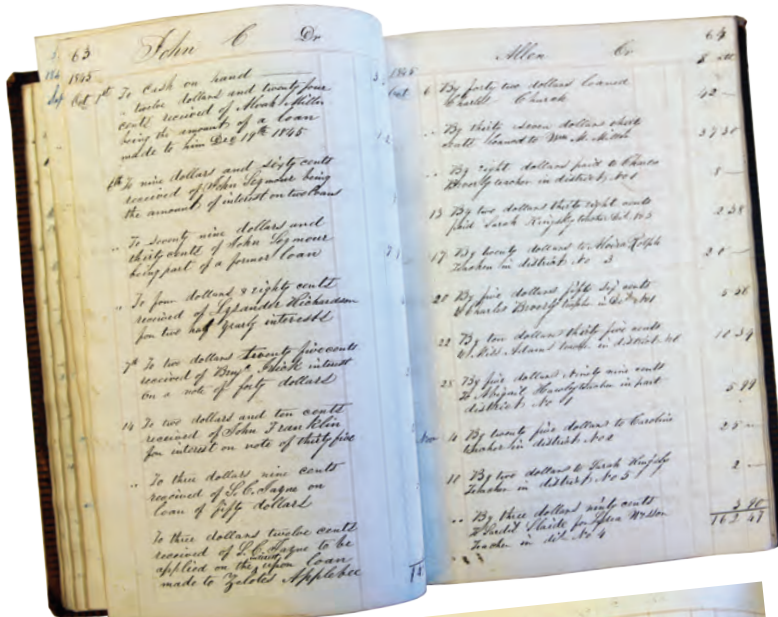 63 John C Dr
1845
Oct 1st To Cash on hand
" twelve dollars and twenty four
cents received of Miller
being the amount of a loan
made to him Dec 19th 1845
6th To nine dollars and sixty cents
received of John Seymour being
the amount of interest on two loans
" To seventy nine dollars and
thirty cents of John Seymour
being part of a former loan
" To four dollars & eighty cents
received of Lysander Richardson
for two yearly interests
7th To two dollars twenty five cents
received of Benja interest
on a note of forty dollars
14 To two dollars and ten cents
received of John Franklin
for interest on note of thirty five
" To three dollars nine cents
received of S. C. Jayne on
loan of fifty dollars
To three dollars twelve cents
received of S. C. Jayne to be
applied on the upon loan
made to Zelotes Applebee
64
Allen Cr
1845
Oct 6 By forty two dollars loaned
Charles Church 42 —
" By thirty seven dollars
cents loaned to Wm M. 37 30
" By eight dollars paid to
Beverly teacher in district No 8 —
13 By two dollars thirty eight cents
paid Sarah Kingsly teacher Dis No 5 2 38
17 By twenty dollars to Rolph
Teacher in district No 3 20 —
20 By five dollars fifty six cents
Charles Beverly 5 56
22 By ten dollars thirty five cents
Adams teacher in district No
28 By five dollars Ninety nine cents
To Abigail teacher in part
district No 5 99
Nov 4 By twenty five dollars to Caroline
teacher in district No 25 —
10 By two dollars to Sarah Kingsly
Teacher in district No 5 2 —
" By three dollars ninety cents
to for
Teacher in dis No 4 3 90
162 47